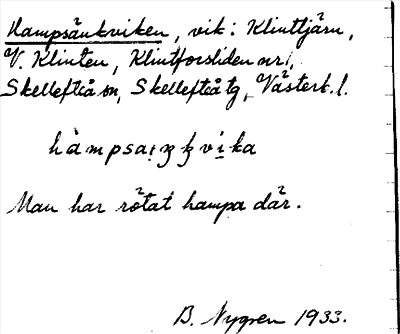 Hampsänkviken, vik: Klinttjärn,
V. Klinten, Klintforsliden nr 1,
Skellefteå sn, Skellefteå tg, Västerb. l.
Man har rötat hampa där.
B. Nygren 1933.